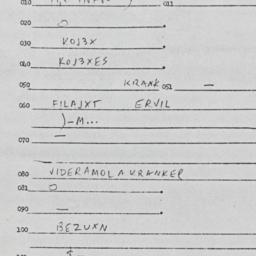 010 011
020 O
030 KOJ3X
040 KOJ3XES
050 KRANK 051 —
060 FILAJXT ERVIL
)-M...
070 —
080 VIDERAMOLAVRANKER
081 O
090 —
100 BEZUXN